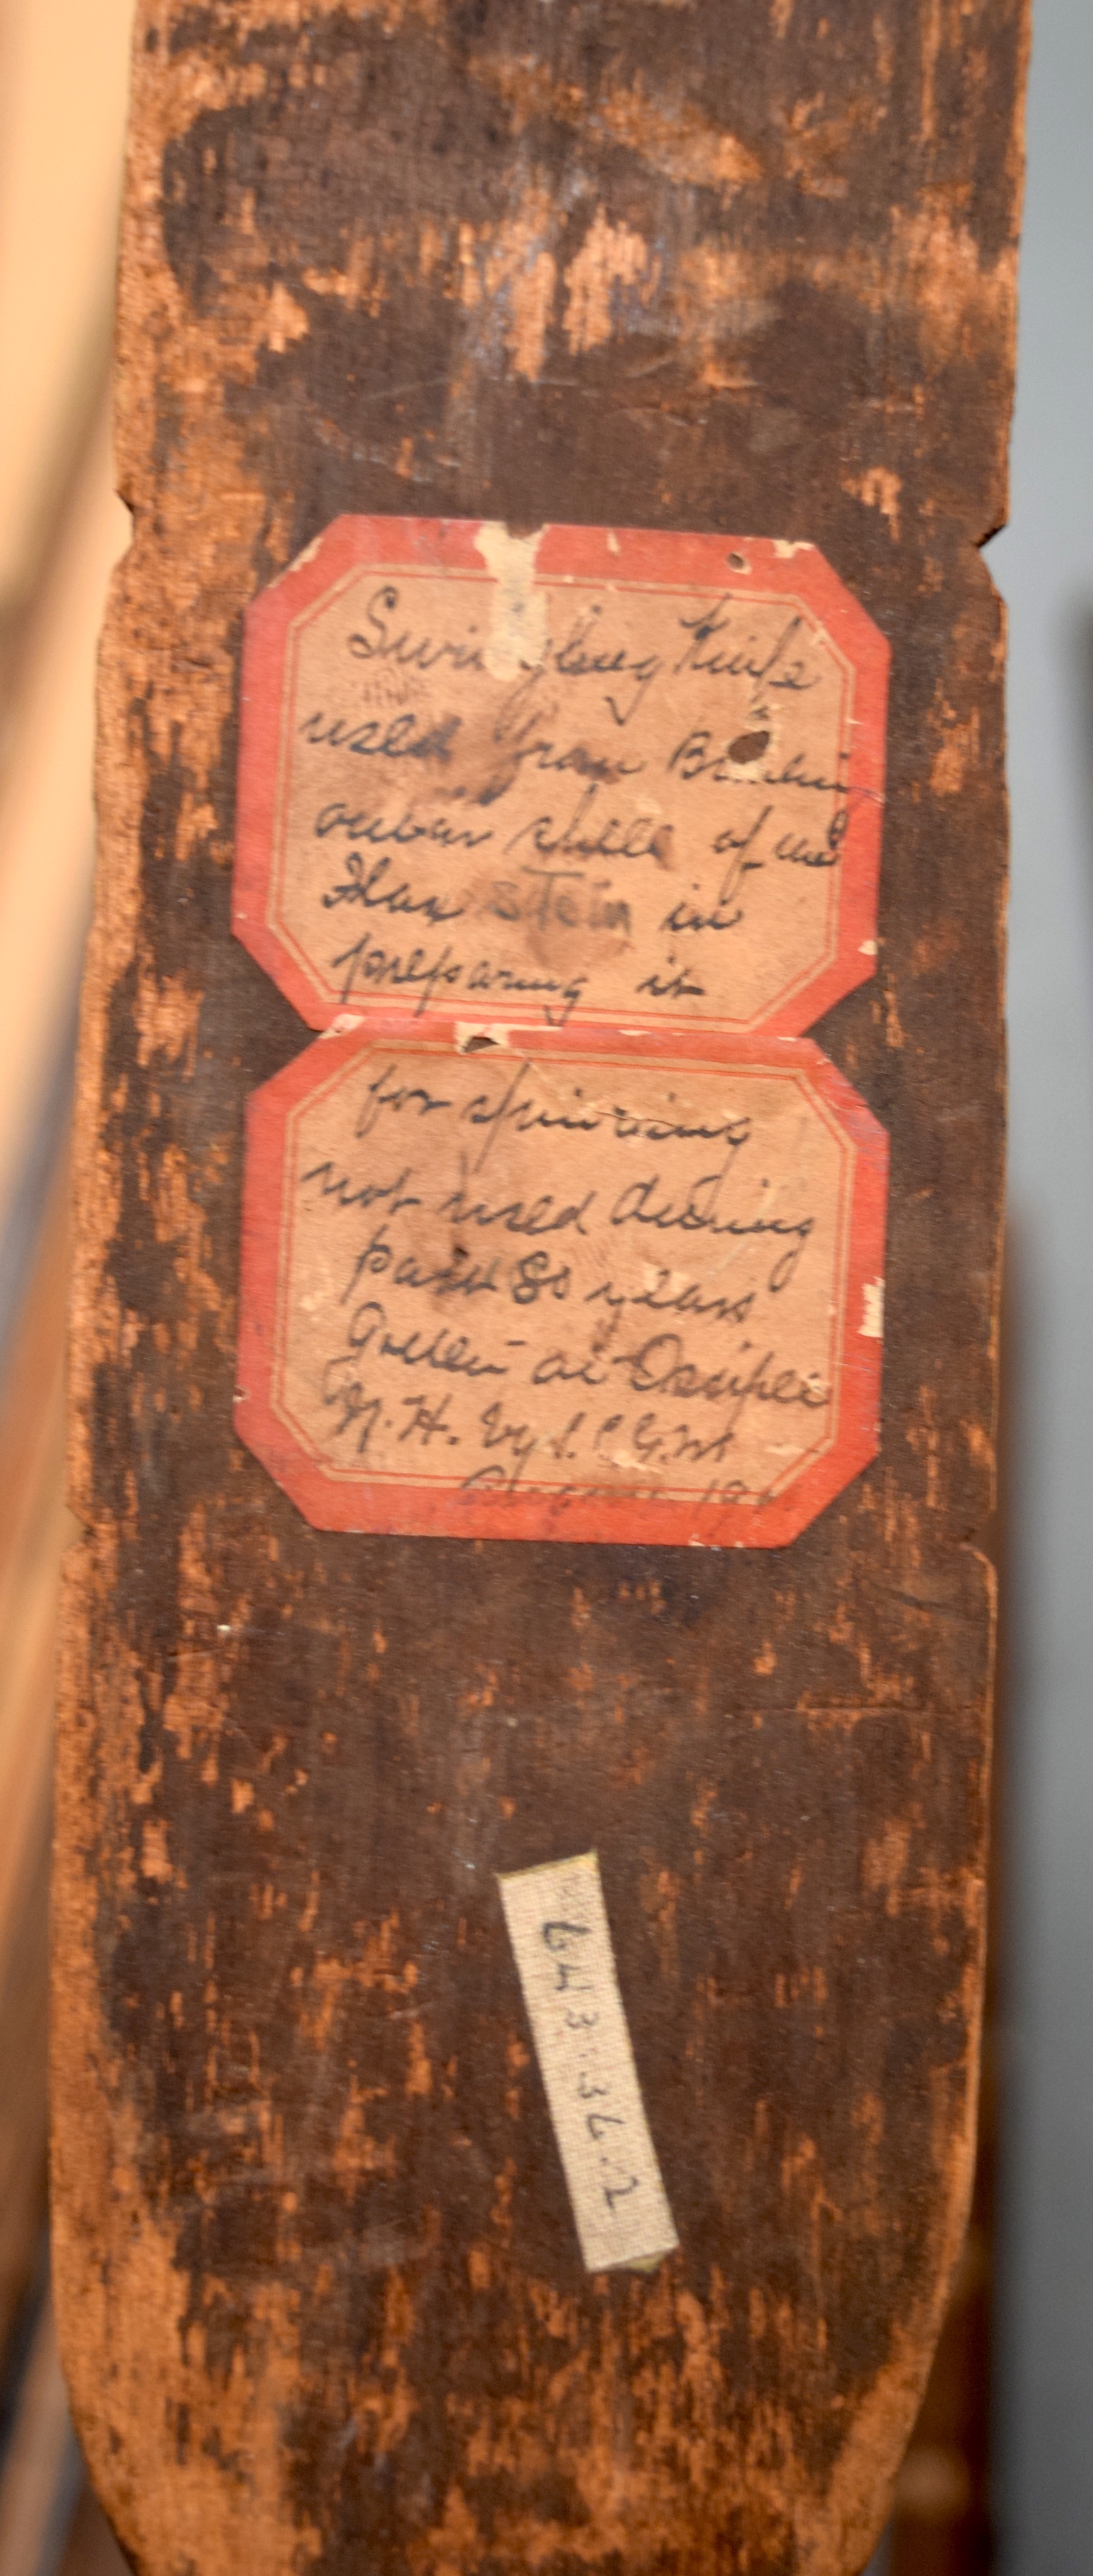 Swingling Knife
used for Breaking
outer shell of the
Flax stem in
preparing it
for spinning
not used during
past 80 years
Gotten at Ossipee
N.H. by